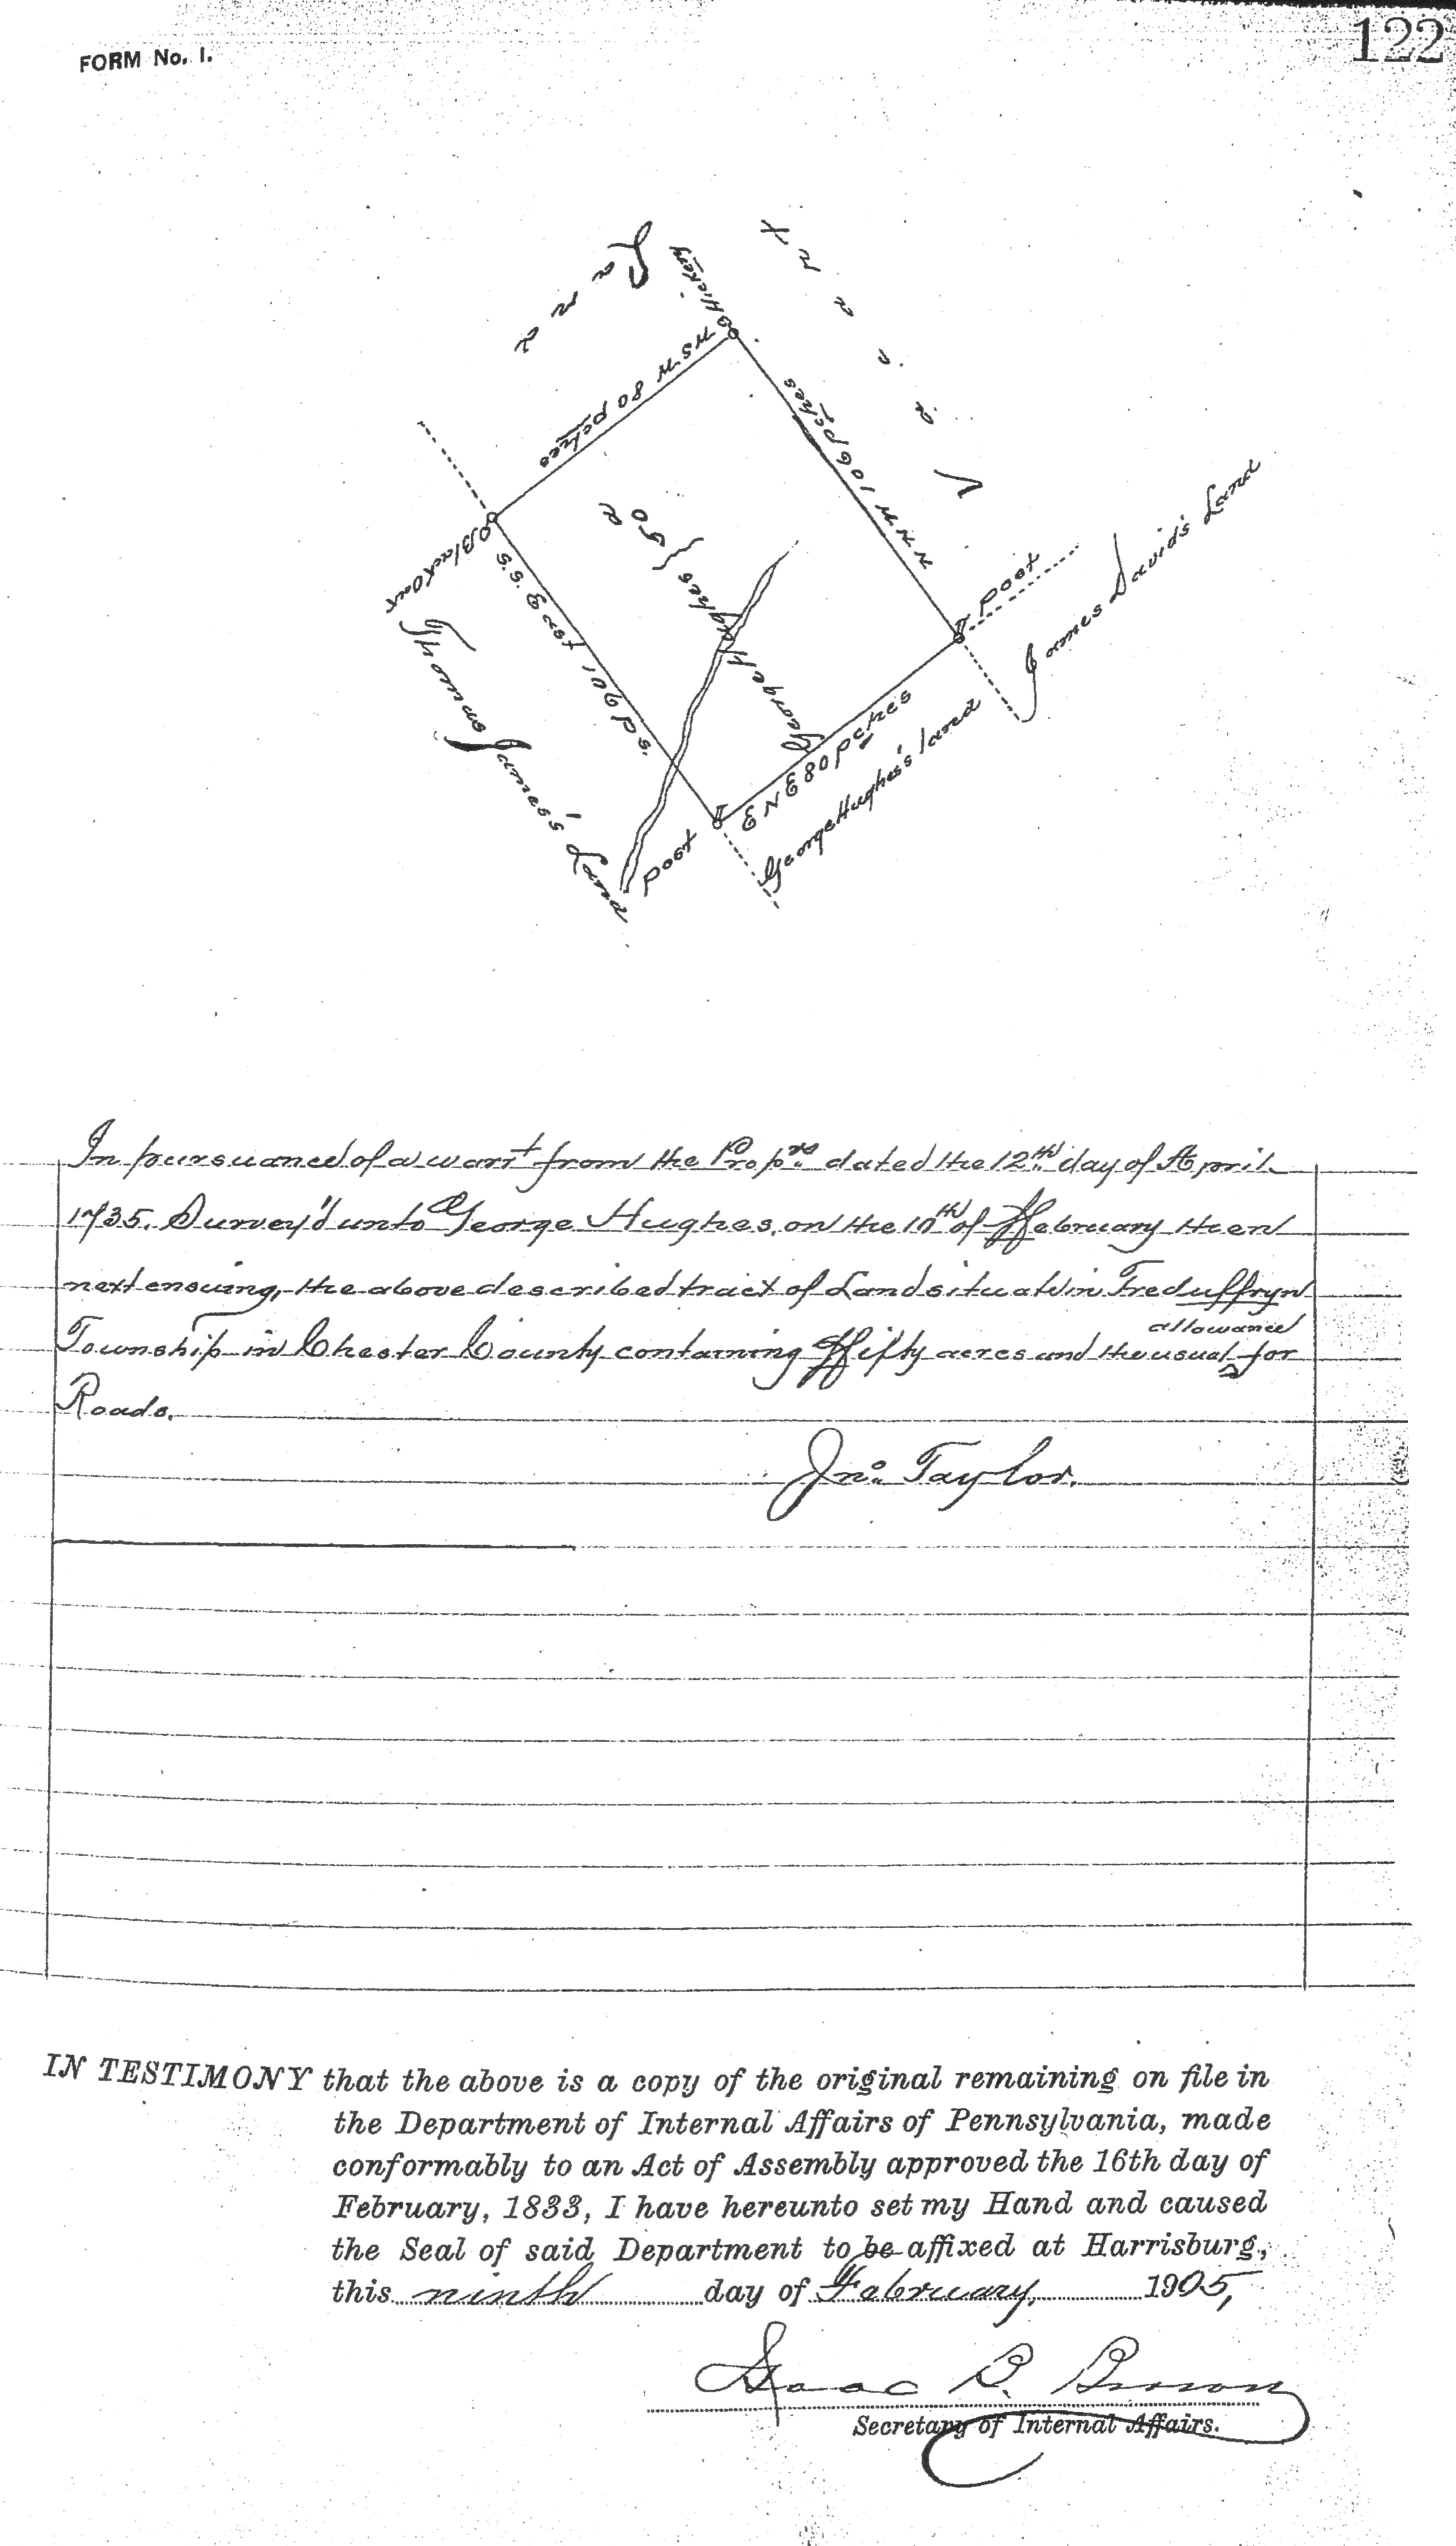 FORM No. 1.
122
Land
Hickery
Vacant
WSW 80 pches
NNW 106 pches
Black Oak
S.S. East 106 ps.
George Hughes { 50 a
Thomas James's Land
Post
James David's Land
ENE 80 pches
George Hughes's land
Post
In pursuance of a warrt from the Proprs dated the 12th day of April
1735. Survey'd unto George Hughes, on the 10th of ffebruary then
next ensuing, the above described tract of Land situate in Treduffryn
allowance
Township in Chester County containing ffifty acres and the usual ^ for
Roads.
Jno. Taylor.
IN TESTIMONY that the above is a copy of the original remaining on file in
the Department of Internal Affairs of Pennsylvania, made
conformably to an Act of Assembly approved the 16th day of
February, 1833, I have hereunto set my Hand and caused
the Seal of said Department to be affixed at Harrisburg,
this ninth day of February, 1905,
Isaac B. Brown
Secretary of Internal Affairs.